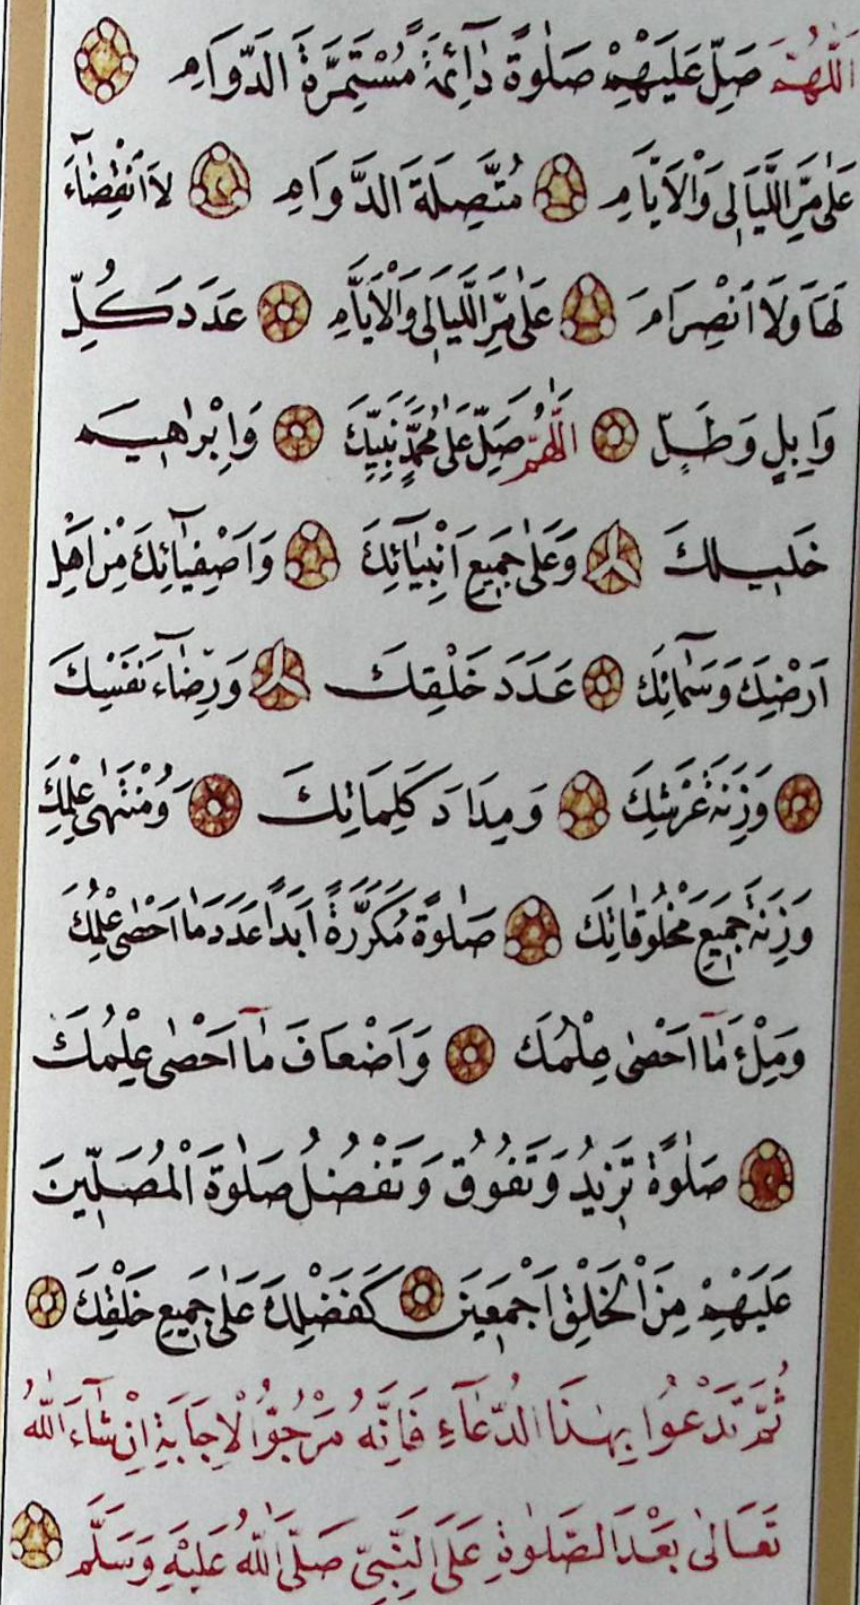 اَللّٰهُمَّ صَلِّ عَلَيْهِمْ صَلٰوةً دَآئِمَةً مُسْتَمِرَّةَ الدَّوَامِ
عَلٰى مَرِّ اللَّيَالِى وَالْاَيَّامِ مُتَّصِلَةَ الدَّوَامِ لَا انْقِضَآءَ
لَهَا وَلَا انْصِرَامَ عَلٰى مَرِّ اللَّيَالِى وَالْاَيَّامِ عَدَدَ كُلِّ
وَابِلٍ وَطَلٍّ اَللّٰهُمَّ صَلِّ عَلٰى مُحَمَّدٍ نَبِيِّكَ وَاِبْرٰهِيمَ
خَلِيلِكَ وَعَلٰى جَمِيعِ اَنْبِيَآئِكَ وَاَصْفِيَآئِكَ مِنْ اَهْلِ
اَرْضِكَ وَسَمَآئِكَ عَدَدَ خَلْقِكَ وَرِضَآءَ نَفْسِكَ
وَزِنَةَ عَرْشِكَ وَمِدَادَ كَلِمَاتِكَ وَمُنْتَهٰى عِلْمِكَ
وَزِنَةَ جَمِيعِ مَخْلُوقَاتِكَ صَلٰوةً مُكَرَّرَةً اَبَدًا عَدَدَ مَا اَحْصٰى عِلْمُكَ
وَمِلْءَ مَآ اَحْصٰى عِلْمُكَ وَاَضْعَافَ مَآ اَحْصٰى عِلْمُكَ
صَلٰوةً تَزِيدُ وَتَفُوقُ وَتَفْضُلُ صَلٰوةَ الْمُصَلِّينَ
عَلَيْهِمْ مِنَ الْخَلْقِ اَجْمَعِينَ كَفَضْلِكَ عَلٰى جَمِيعِ خَلْقِكَ
ثُمَّ تَدْعُوا بِهٰذَا الدُّعَآءِ فَاِنَّهُ مَرْجُوُّ الْاِجَابَةِ اِنْ شَآءَ اللّٰهُ
تَعَالٰى بَعْدَ الصَّلٰوةِ عَلَى النَّبِىِّ صَلَّى اللّٰهُ عَلَيْهِ وَسَلَّمَ